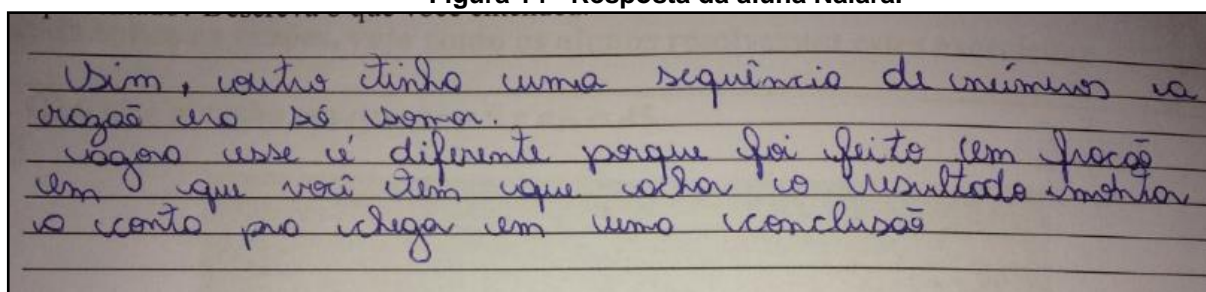 Figura 14 - Resposta da aluna Naiara.
Sim, outro tinha uma sequência de números a
razaõ era só somar.
agora esse é diferente porque foi feito em fração
em que você tem que achar o resultado montar
a conto pra chega em uma conclusaõ